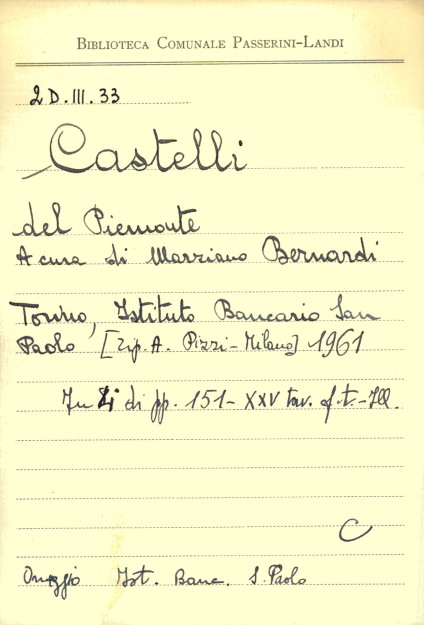 BIBLIOTECA COMUNALE PASSERINI-LANDI
2D.III.33
Castelli
del Piemonte
A cura di Marziano Bernardi
Torino, Istituto Bancario San
Paolo [Tip. A. Pizzi-Milano] 1961
In di pp. 151-XXV tav. f.t.-Ill.
C
Omaggio Ist. Banc. S. Paolo